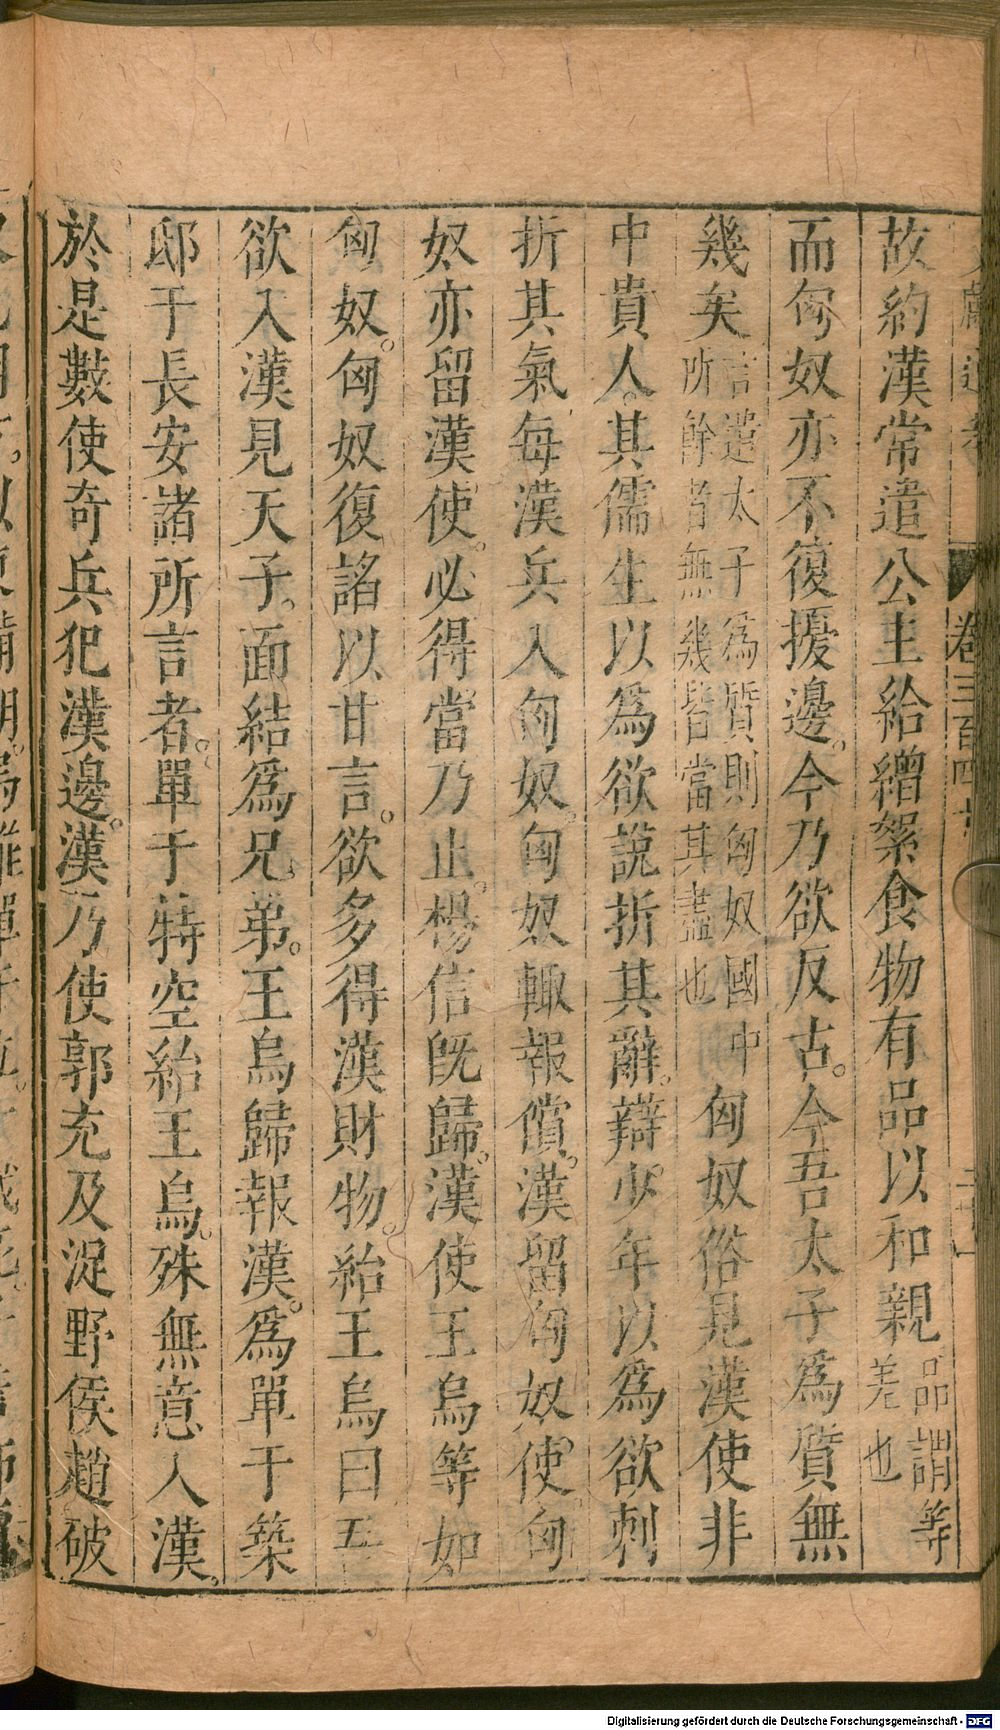 故約漢常遣公主給繒絮食物有品以和親品謂等差也
而匈奴亦不復擾邊。今乃欲反古。今吾太子為質無
幾矣言遣太子為質則匈奴國中所餘者無幾皆當其盡也匈奴俗見漢使非
中貴人。其儒生以為欲說折其辭。辯少年以為欲刺
折其氣每漢兵入匈奴。匈奴輙報償。漢留匈奴使。匈
奴亦留漢使。必得當乃止。楊信既歸。漢使王烏等如
匈奴。匈奴復諂以甘言。欲多得漢財物。紿王烏曰吾
欲入漢見天子。面結為兄弟。王烏歸報漢。為單于築
邸于長安諸所言者。單于特空紿王烏。殊無意入漢。
於是數使奇兵犯漢邊。漢乃使郭充及浞野侯趙破
卷三百四十
Digitalisierung gefördert durch die Deutsche Forschungsgemeinschaft - DFG